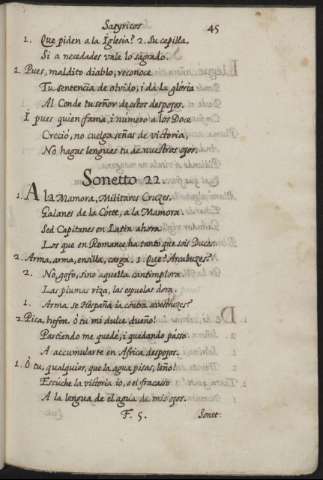 Satyricos. 45
1. Que piden a la Iglesia? 2. Su capilla.
Si a necedades vale lo sagrado.
2. Pues, maldito diablo, reconoce
Tu sentencia de olvido, i dà la gloria
Al Conde tu señor de estos despojos.
I pues quien fama, i numero a los Doce
Creciò, no cuelga señas de victoria,
No hagas lenguas tu de nuestros ojos.
Sonetto 22.
1. A la Mamora, Militares Cruzes.
Galanes de la Corte, a la Mamora.
Sed Capitanes en Latin ahora
Los que en Romance ha tanto que sois Duces.
2. Arma, arma, ensilla, carga. 1. Que? Arcabuzes?
2. No, gofo, sino aquella cantimplora.
Las plumas riza, las espuelas dora.
1. Arma
2. Pica, ò tu mi dulce dueño!
Partiendo me quedè, i quedando passo
A accumularte en Africa despojos.
1. O tu, qualquier, que la agua pisas, leño!
Escuche la victoria io, o el fracaso
A la lengua de el agua de mis ojos.
F. 5. Sonet.